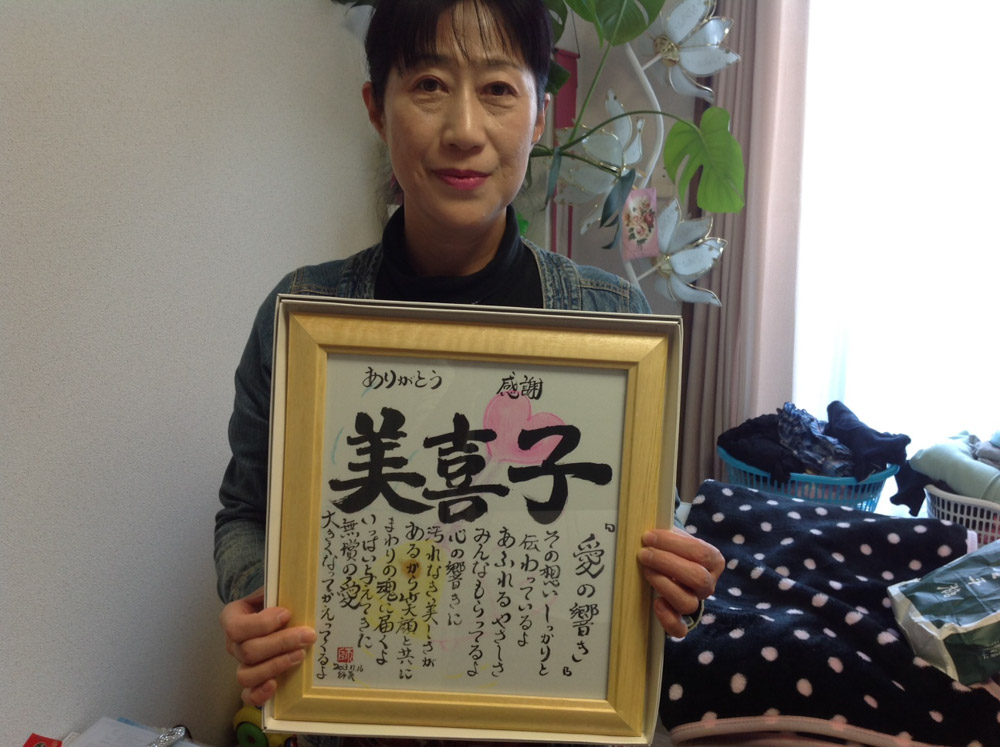 ありがとう 感謝
美喜子
「愛の響き」
その想いしっかりと
伝わっているよ
あふれるやさしさ
みんなもらってるよ
心の響きに
汚れなき美しさが
あるから笑顔と共に
まわりの魂に届くよ
いっぱい与えてきた
無償の愛
大きくなってかえってくるよ
2013.11.16